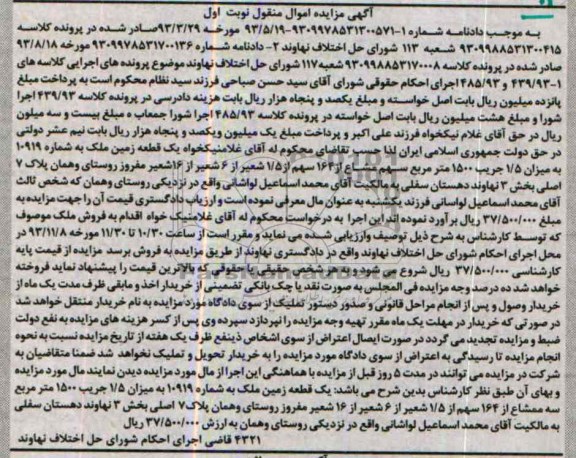 آگهی مزایده اموال منقول نوبت اول
به موجب دادنامه شماره ۱-۹۳۰۹۹۷۸۵۳۱۳۰۰۵۷۱-۹۳/۵/۱۹ مورخه ۹۳/۳/۲۹صادر شده در پرونده کلاسه
۹۳۰۹۹۸۸۵۳۱۳۰۰۴۱۵ شعبه ۱۱۳ شورای حل اختلاف نهاوند ۲- دادنامه شماره ۹۳۰۹۹۷۸۵۳۱۷۰۰۱۳۶ مورخه ۹۳/۸/۱۸
صادر شده در پرونده کلاسه ۹۳۰۹۹۸۸۵۳۱۷۰۰۰۸ شعبه۱۱۷ شورای حل اختلاف نهاوند موضوع پرونده های اجرایی کلاسه های
۴۳۹/۹۳-۱ و ۴۸۵/۹۳ اجرای احکام حقوقی شورای آقای سید حسن صباحی فرزند سید نظام محکوم است به پرداخت مبلغ
پانزده میلیون ریال بابت اصل خواسته و مبلغ یکصد و پنجاه هزار ریال بابت هزینه دادرسی در پرونده کلاسه ۴۳۹/۹۳ اجرا
شورا و مبلغ هشت میلیون ریال بابت اصل خواسته در پرونده کلاسه ۴۸۵/۹۳ اجرا شورا جمعاب ه مبلغ بیست و سه میلون
ریال در حق آقای غلام نیکخواه فرزند علی اکبر و پرداخت مبلغ یک میلیون ویکصد و پنجاه هزار ریال بابت نیم عشر دولتی
در حق دولت جمهوری اسلامی ایران لذا حسب تقاضای محکوم له آقای غلامنیکخواه یک قطعه زمین ملک به شماره ۱۰۹۱۹
به میزان ۱/۵ جریب ۱۵۰۰ متر مربع سهم مشاع از ۱۶۴ سهم از ۱/۵ شعیر از ۶ شعیر از ۱۶شعیر مفروز روستای وهمان پلاک ۷
اصلی بخش ۳ نهاوند دهستان سفلی به مالکیت آقای محمد اسماعیل لواشانی واقع در نزدیکی روستای وهمان که شخص ثالث
آقای محمد اسماعیل لواسانی فرزند یکشنبه به عنوان مال معرفی نموده است و ارزیاب دادگستری قیمت آن را جهت مزایده به
مبلغ ۳۷/۵۰۰/۰۰۰ ریال بر آورد نموده اند این اجرا به درخواست محکوم له آقای غلامنیک خواه اقدام به فروش ملک موصوف
که توسط کارشناس به شرح ذیل توصیف وارزیابی شده می نماید و مقرر است از ساعت ۱۰/۳۰ تا ۱۱/۳۰ مورخه ۹۳/۱۱/۸ در
محل اجرای احکام شورای حل اختلاف نهاوند واقع در دادگستری نهاوند از طریق مزایده به فروش برسد مزایده از قیمت پایه
کارشناسی ۳۷/۵۰۰/۰۰۰ ریال شروع می شود و هر شخص حقیقی یا حقوقی که بالاترین قیمت را پیشنهاد نماید فروخته
خواهد شد ده درصد وجه مزایده فی المجلس به صورت نقد یا چک بانکی تضمینی از خریدار اخذ و مابقی ظرف مدت یک ماه از
خریدار وصول و پس از انجام مراحل قانونی و صدور دستور تملیک از سوی دادگاه مورد مزایده به نام خریدار منتقل خواهد شد
در صورتی که خریدار در مهلت یک ماه مقرر تهیه وجه مزایده را نپردازد سپرده وی پس از کسر هزینه های مزایده به نفع دولت
ضبط و مزایده تجدید می گردد در صورت ایصال اعتراض از سوی اشخاص ذینفع ظرف یک هفته از تاریخ مزایده نسبت به نحوه
انجام مزایده تا رسیدگی به اعتراض از سوی دادگاه مورد مزایده را به خریدار تحویل و تملیک نخواهد شد ضمنا متقاضیان به
شرکت در مزایده می توانند در مدت ۵ روز قبل از مزایده با هماهنگی این اجرا از مال مورد مزایده دیدن نمایند مال مورد مزایده
و بهای آن طبق نظر کارشناس بدین شرح می باشد: یک قطعه زمین ملک به شماره ۱۰۹۱۹ به میزان ۱/۵ جریب ۱۵۰۰ متر مربع
سه ممشاع از ۱۶۴ سهم از ۱/۵ شعیر از ۶ شعیر از ۱۶ شعیر مفروز روستای وهمان پلاک ۷ اصلی بخش ۳ نهاوند دهستان سفلی
به مالکیت آقای محمد اسماعیل لواشانی واقع در نزدیکی روستای وهمان به ارزش ۳۷/۵۰۰/۰۰۰ ریال
۴۳۲۱ قاضی اجرای احکام شورای حل اختلاف نهاوند